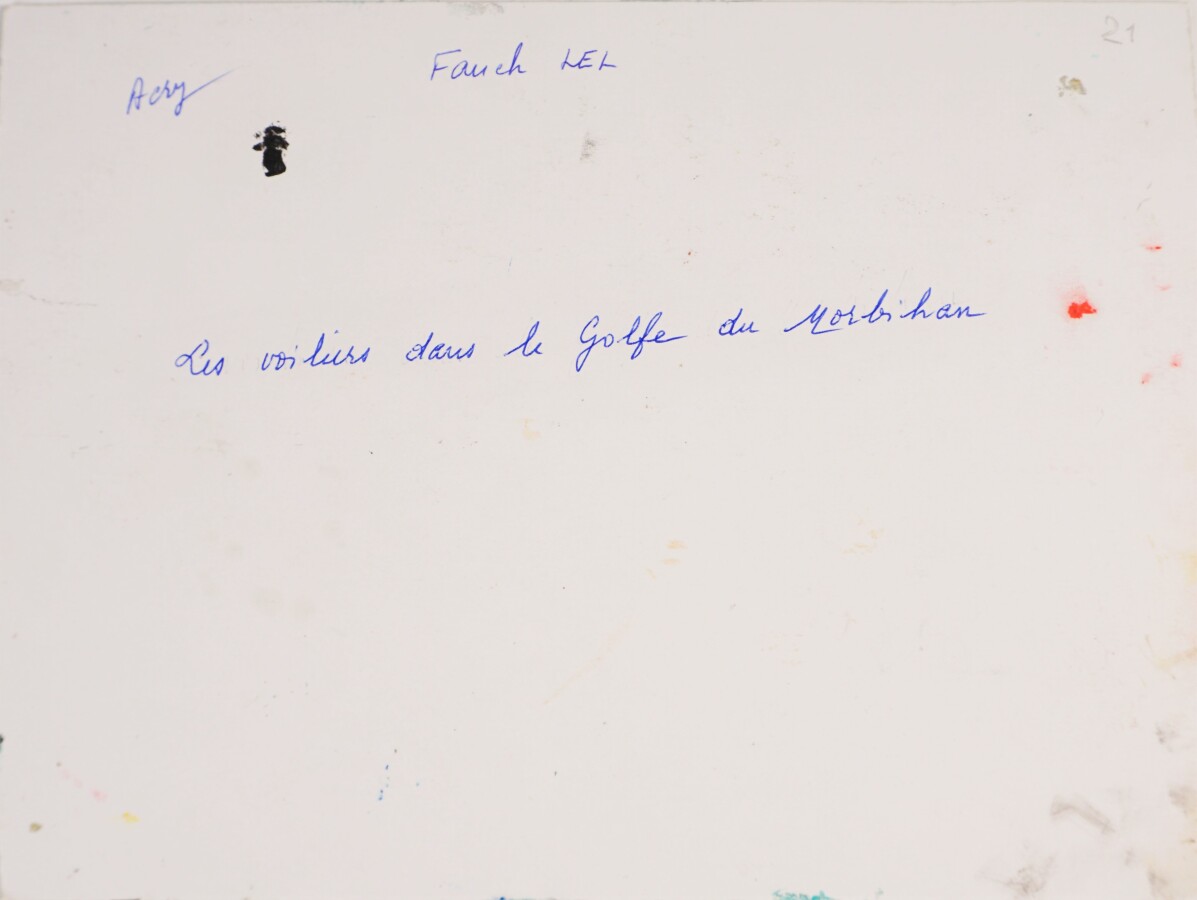 21
Fanch LEL
Acry
Les voiliers dans le Golfe du Morbihan